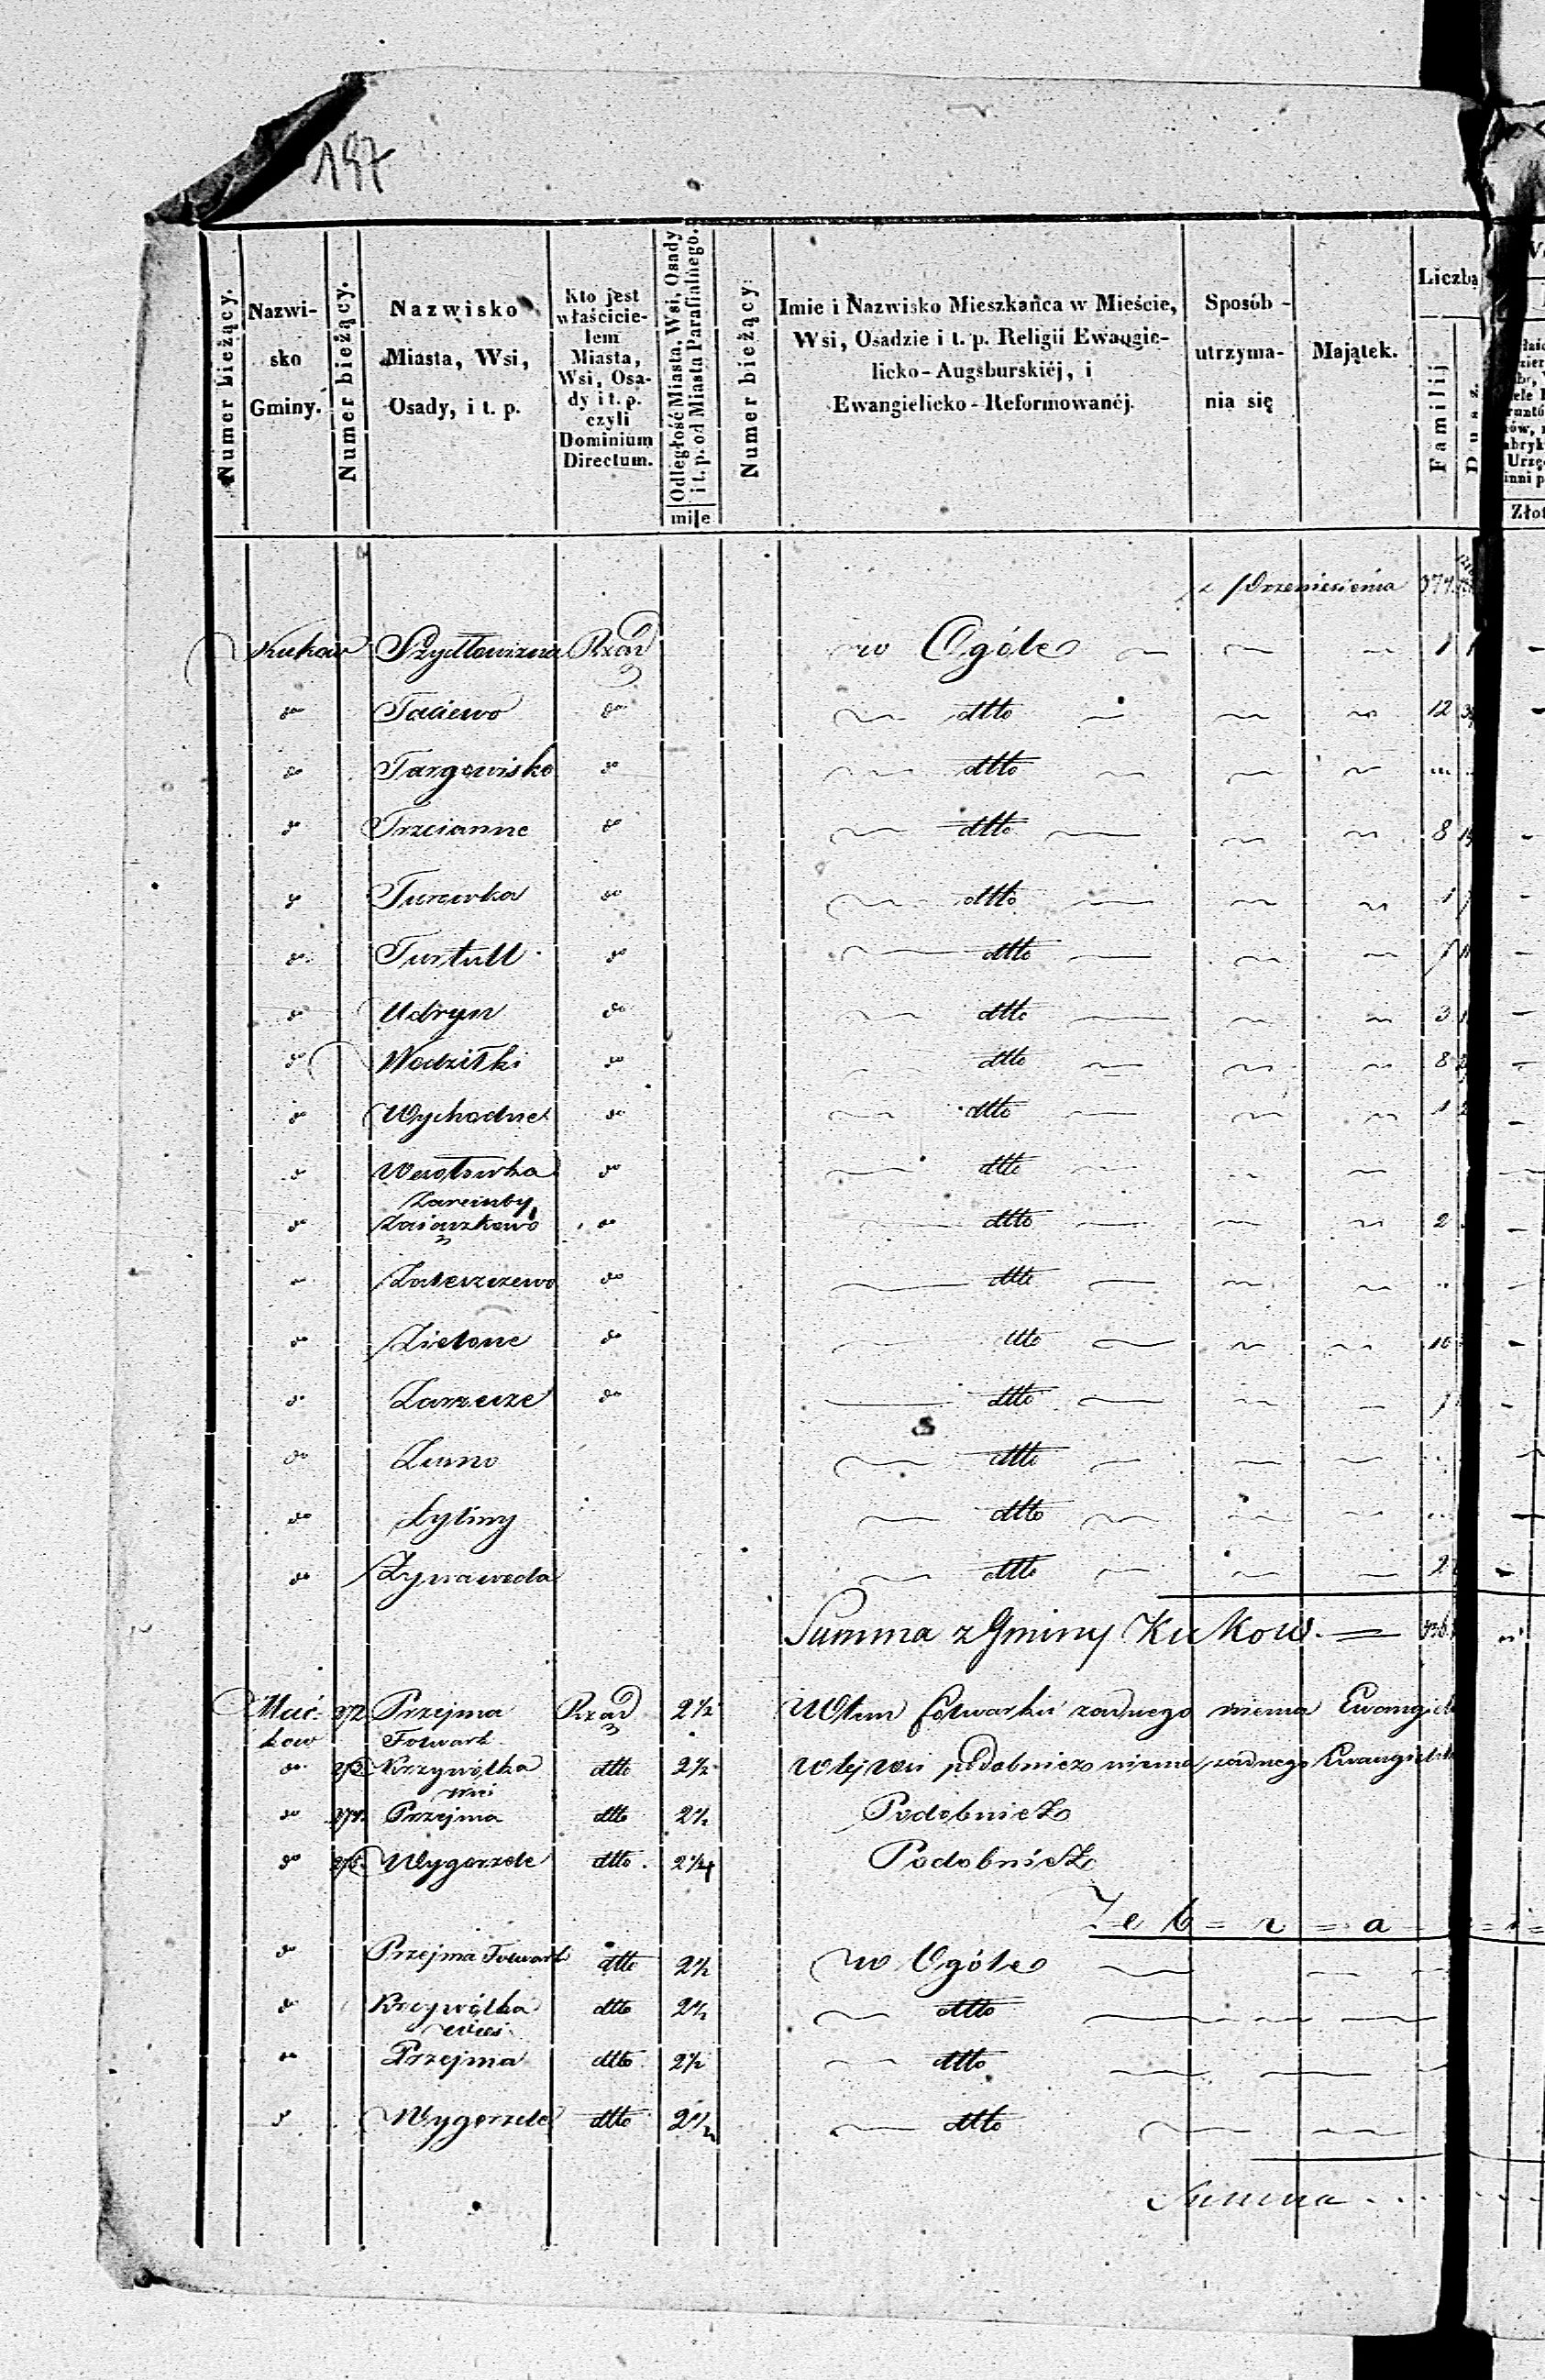 197
Numer bieżący.
Nazwi-
sko
Gminy.
Numer bieżący.
Nazwisko
Miasta, Wsi,
Osady, i t. p.
Kto jest
właścicie-
lem
Miasta,
Wsi, Osa-
dy i t. p.
czyli
Dominium
Directum.
Odległość Miasta, Wsi, Osady
i t. p. od Miasta Parafialnego.
mile
Numer bieżący:
Imie i Nazwisko Mieszkańca w Mieście,
Wsi, Osadzie i t. p. Religii Ewangie-
licko-Augsburskiéj, i
Ewangielicko-Reformowanéj.
Sposób
utrzyma-
nia się
Majątek.
Liczba
Familij
Dusz.
Złot
z Przeniesienia 374
Kukow Szydłowizna Rząd w Ogóle 1 1
do Taciewo do dtto 12
do Targowisko do dtto
do Trzcianne do dtto 8
do Turówka do dtto 1
do Turtull do dtto 1
do Udryn do dtto 3
do Wodziłki do dtto 8
do Wychodne do dtto 1 2
do do dtto
Zaremby
do Zaiączkowo do dtto 2
do do dtto
do Zielone do dtto 10
do Zarzecze do dtto 1
do Zusno dtto
do Żyliny dtto
do Żywawoda dtto 2
Summa z Gminy Kukow
Mać- 372 Przejma Rząd 2½ W tem folwarku żadnego niema Ewangiel
kow Folwark
do 373 Krzywólka dtto 2½ w tej wsi podobnież niema żadnego Ewangielik
wieś
do 374 Przejma dtto 2½ Podobnież
do 375 Wygorzele dtto 2½ Podobnież
Z e b = r = a
do Przejma Folwark dtto 2½ w Ogóle
do Krzywólka dtto 2½ dtto
wieś
do Przejma dtto 2½ dtto
do Wygorzele dtto 2½ dtto
Summa